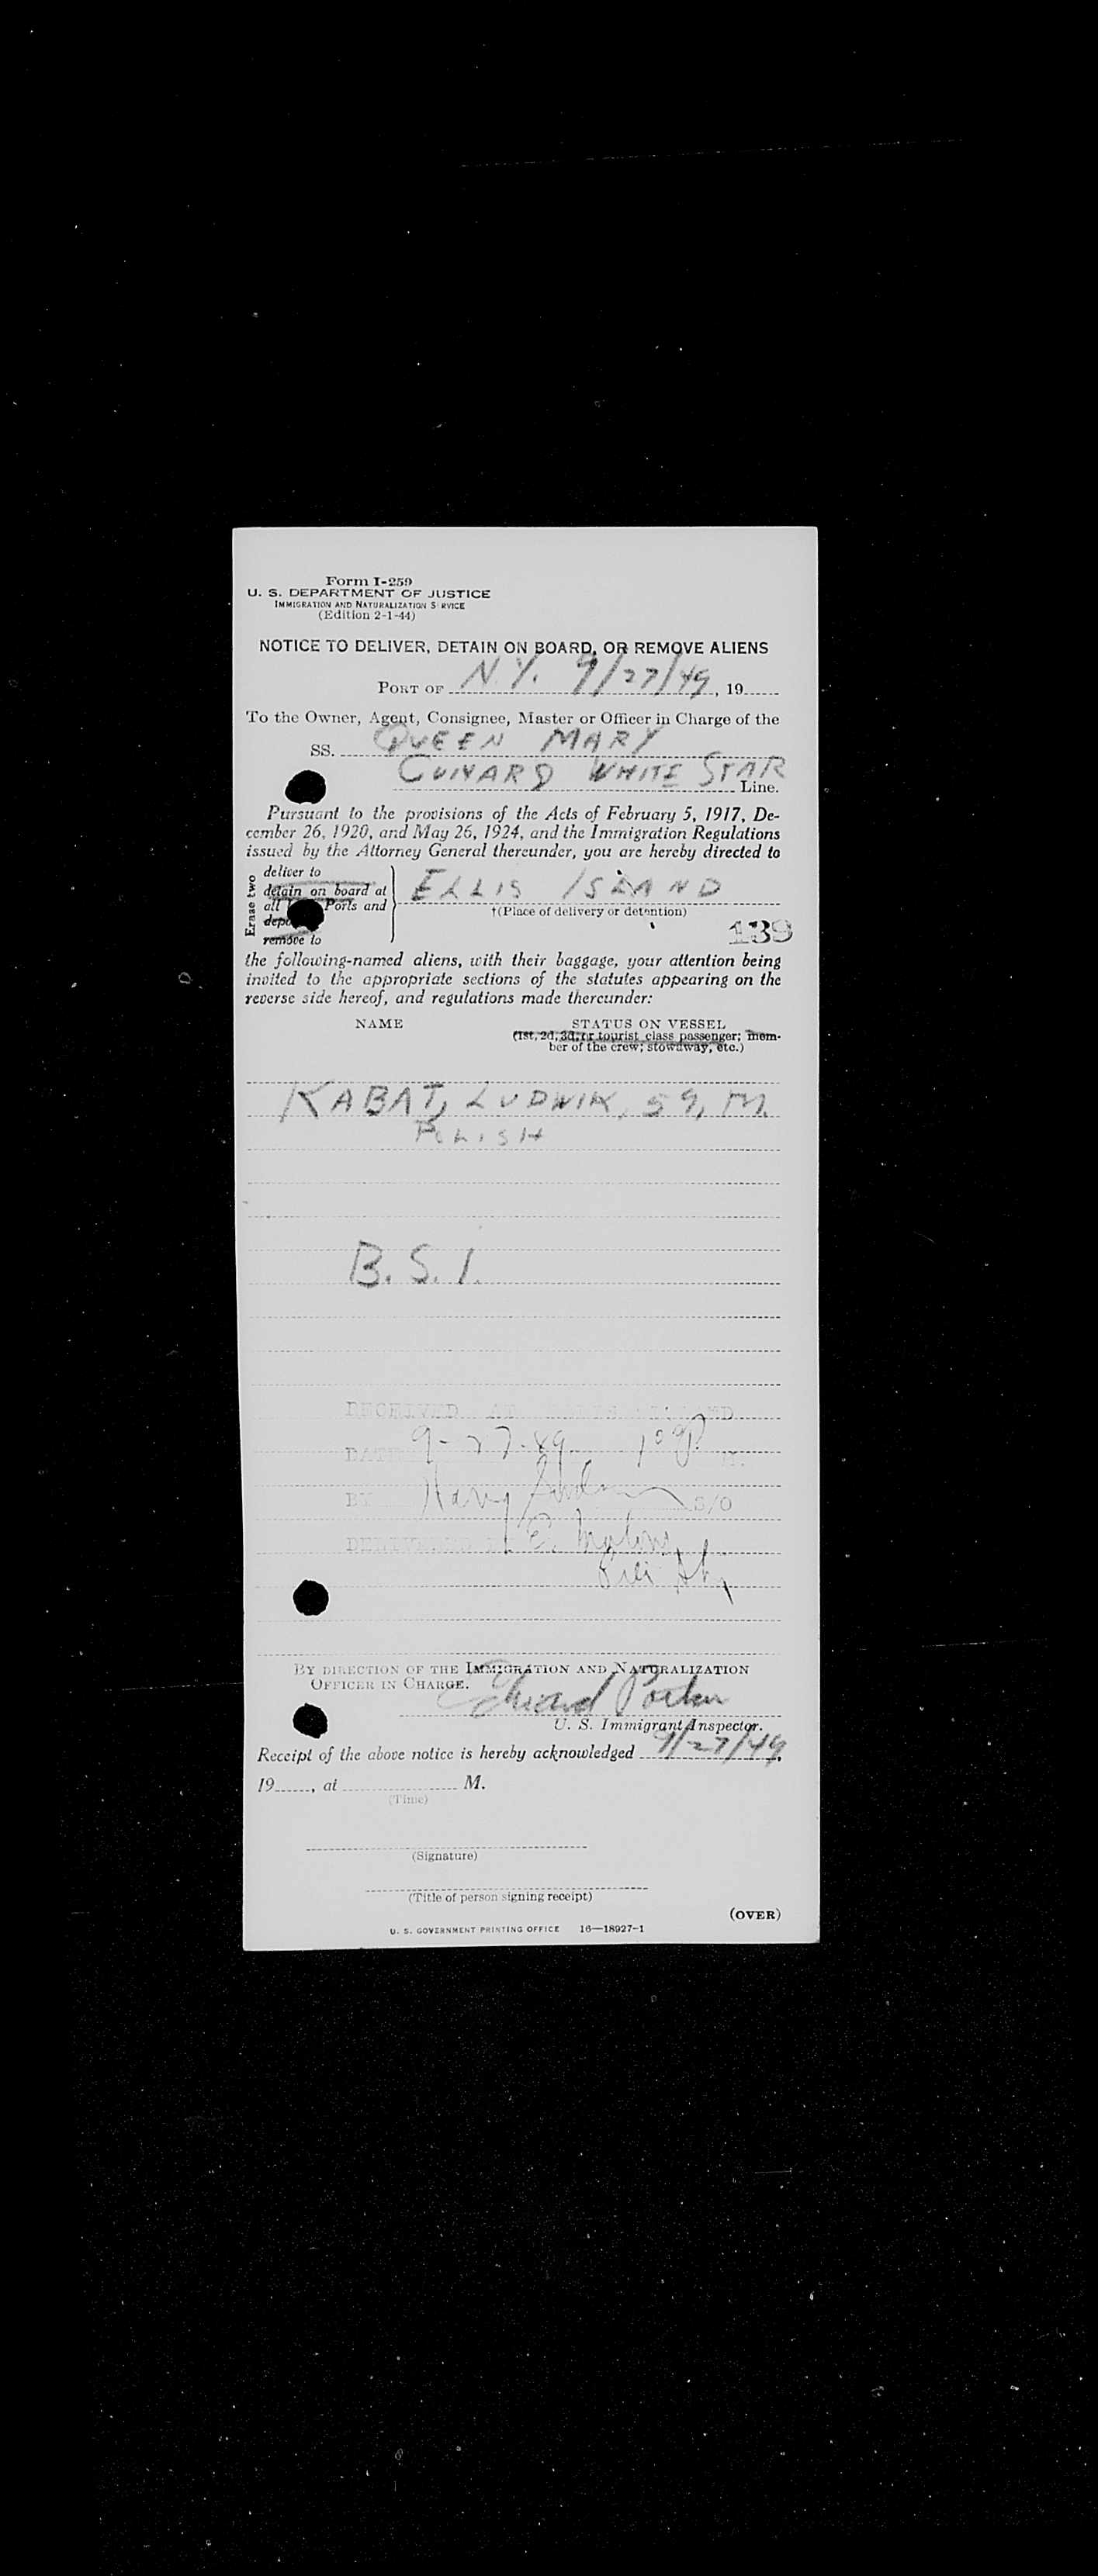 Form I-259
U. S. DEPARTMENT OF JUSTICE
IMMIGRATION AND NATURALIZATION S RVICE
(Edition 2-1-44)
NOTICE TO DELIVER, DETAIN ON BOARD, OR REMOVE ALIENS
PORT OF N.Y. 9/27/49, 19
To the Owner, Agent, Consignee, Master or Officer in Charge of the
SS. QUEEN MARY
CUNARD WHITE STAR
Line.
Pursuant to the provisions of the Acts of February 5, 1917, De-
cember 26, 1920, and May 26, 1924, and the Immigration Regulations
issued by the Attorney General thereunder, you are hereby directed to
Erase two
deliver to
detain on board at
all Ports and
remove to
ELLIS ISLAND
†(Place of delivery or detention)
139
the following-named aliens, with their baggage, your attention being
invited to the appropriate sections of the statutes appearing on the
reverse side hereof, and regulations made thereunder:
NAME STATUS ON VESSEL
(1st, 2d, 3d, or tourist class passenger; mem-
ber of the crew; stowaway, etc.)
KABAT, LUDWIK, 59, M.
POLISH
B.S.I.
RECEIVED AT
DATE 9-27-49 M.
BY Harry S/O
DELIVERED E.
BY DIRECTION OF THE IMMIGRATION AND NATURALIZATION
OFFICER IN CHARGE.
Edward
U. S. Immigrant Inspector.
Receipt of the above notice is hereby acknowledged 9/27/49,
19, at M.
(Time)
(Signature)
(Title of person signing receipt)
(OVER)
U. S. GOVERNMENT PRINTING OFFICE 16—18927-1